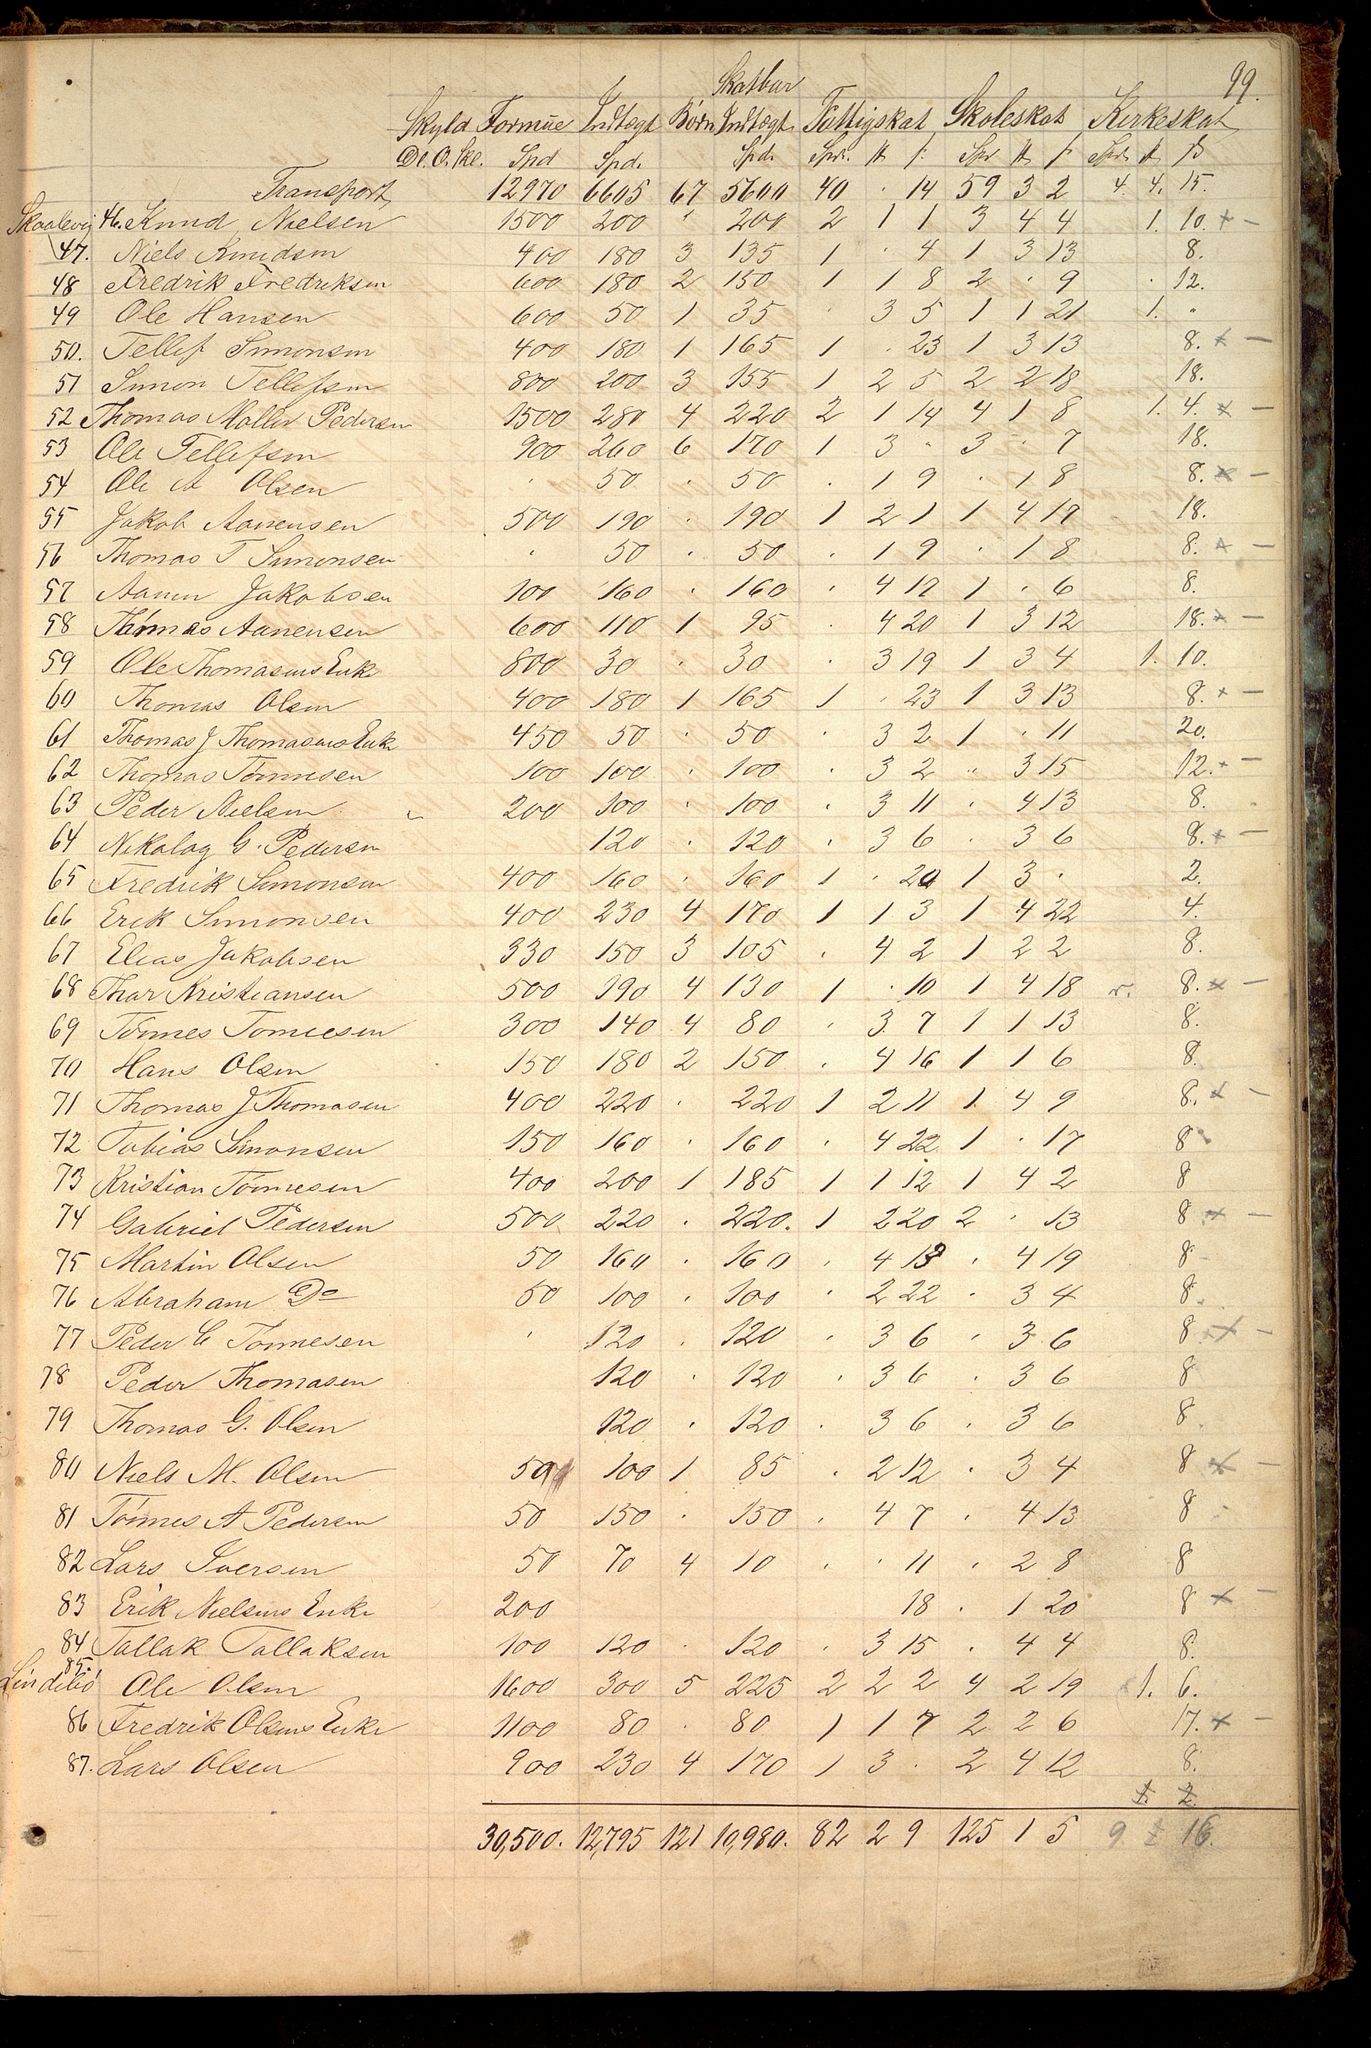 99.
Skatbar
Skyld Formue Indtægt Børn Indtægt Fattigskat Skoleskat Kirkeskat
D. O. Skl. Spd Spd. Spd. Spd. # ß Spd # ß Spd. # ß
Transport 12970 6605 67 5600 40 . 14 59 3 2 4. 4. 15.
Skaalevig 46. Knud Nielsen 1500 200 " 200 2 1 1 3 4 4 1. 10. x -
47. Niels Knudsen 400 180 3 135 1 . 4 1 3 13 8.
48 Fredrik Fredriksen 600 180 2 150 1 1 8 2 . 9 . 12.
49 Ole Hansen 600 50 1 35 . 3 5 1 1 21 1. "
50. Tellef Simonsen 400 180 1 165 1 . 23 1 3 13 8. x -
51 Simon Tellefsen 800 200 3 155 1 2 5 2 2 18 18.
52 Thomas Møller Pedersen 1500 280 4 220 2 1 14 4 1 8 1. 4. x -
53 Ole Tellefsen 900 260 6 170 1 3 . 3 . 7 18.
54 Ole A Olsen . 50 . 50 . 1 9 . 1 8 8. x -
55 Jakob Aanensen 500 190 . 190 1 2 1 1 4 19 18.
56 Thomas T Simonsen . 50 . 50 . 1 9 . 1 8 8. x -
57 Aanen Jakobsen 100 160 . 160 . 4 12 1 . 6 8.
58 Thomas Aanensen 600 110 1 95 . 4 20 1 3 12 18. x -
59 Ole Thomasens Enke 800 30 . 30 . 3 19 1 3 4 1. 10.
60 Thomas Olsen 400 180 1 165 1 . 23 1 3 13 8. x -
61 Thomas J Thomasens Enke 450 50 . 50 . 3 2 1 . 11 20.
62 Thomas Tønnesen 100 100 . 100 . 3 2 " 3 15 12. x -
63 Peder Nielsen 200 100 . 100 . 3 11 . 4 13 8.
64 Nikolay G. Pedersen 120 . 120 . 3 6 . 3 6 8. x -
65 Fredrik Simonsen 400 160 . 160 1 . 20 1 3 . 2.
66 Erik Simonsen 400 230 4 170 1 1 3 1 4 22 4.
67 Elias Jakobsen 330 150 3 105 . 4 2 1 2 2 8.
68 Thor Kristiansen 500 190 4 130 1 . 10 1 4 18 8. x -
69 Tönnes Tönnesen 300 140 4 80 . 3 7 1 1 13 8.
70 Hans Olsen 150 180 2 150 . 4 16 1 1 6 8.
71 Thomas J Thomasen 400 220 . 220 1 2 11 1 4 9 8. x -
72 Tobias Simonsen 150 160 . 160 . 4 22 1 . 17 8
73 Kristian Tönnesen 400 200 1 185 1 1 12 1 4 2 8
74 Gabriel Pedersen 500 220 . 220. 1 2 20 2 . 13 8 x -
75 Martin Olsen 50 160 . 160 . 4 13 . 4 19 8
76 Abraham Do 50 100 . 100 . 2 22 . 3 4 8.
77 Peder C Tönnesen . 120 . 120 . 3 6 . 3 6 8 x -
78 Peder Thomasen 120 . 120 . 3 6 . 3 6 8
79 Thomas G. Olsen 120 . 120 . 3 6 . 3 6 8
80 Niels M. Olsen 50 100 1 85 . 2 12 . 3 4 8 x -
81 Tönnes A Pedersen 50 150 . 150 . 4 7 . 4 13 8
82 Lars Iversen 50 70 4 10 . . 11 . 2 8 8
83 Erik Nielsens Enke 200 18 . 1 20 8 x -
84 Tallak Tallaksen 100 120 . 120 . 3 15 . 4 4 8.
Lindebø 85. Ole Olsen 1600 300 5 225 2 2 2 4 2 19 1. 6.
86 Fredrik Olsens Enke 1100 80 . 80 1 1 7 2 2 6 17. x -
87. Lars Olsen 900 230 4 170 1 3 . 2 4 12 8.
1. 2.
30,500. 12,795 121 10,980. 82 2 9 125 1 5 9. 1 16.